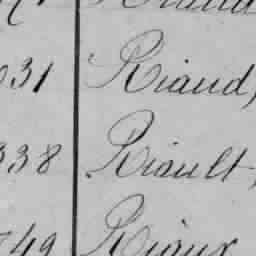 031 Riaud,
338 Riault,
749 Riaux